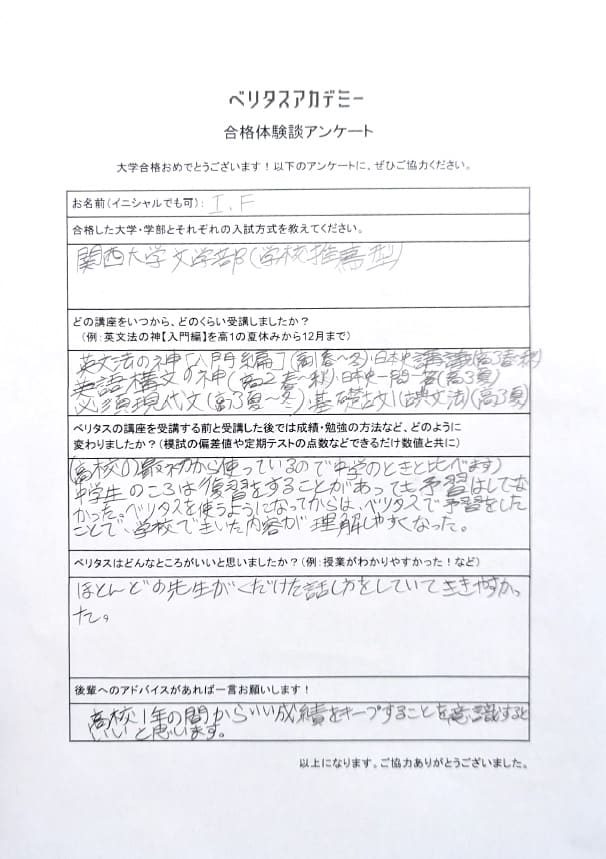 ベリタスアカデミー
合格体験談アンケート
大学合格おめでとうございます！以下のアンケートに、ぜひご協力ください。
お名前(イニシャルでも可)： I.F
合格した大学・学部とそれぞれの入試方式を教えてください。
関西大学文学部(学校推薦型)
どの講座をいつから、どのくらい受講しましたか？
(例：英文法の神【入門編】を高1の夏休みから12月まで)
英文法の神「入門編」(高1春〜冬)・日本史講義(高3春〜秋)
英語構文の神(高2春〜秋)・日本史一問一答(高3夏)
必須現代文(高3夏〜冬)・基礎古文(古典文法)(高3夏)
ベリタスの講座を受講する前と受講した後では成績・勉強の方法など、どのように
変わりましたか？(模試の偏差値や定期テストの点数などできるだけ数値と共に)
(高校の最初から使っているので中学のときと比べます)
中学生のころは復習をすることがあっても予習はしてな
かった。ベリタスを使うようになってからは、ベリタスで予習をした
ことで、学校で主いた内容が理解しやすくなった。
ベリタスはどんなところがいいと思いましたか？(例：授業がわかりやすかった！など)
ほとんどの先生がくだけた話し方をしていてききやすかっ
た。
後輩へのアドバイスがあれば一言お願いします！
高校1年の間からいい成績をキープすることを意識すると
いいと思います。
以上になります。ご協力ありがとうございました。